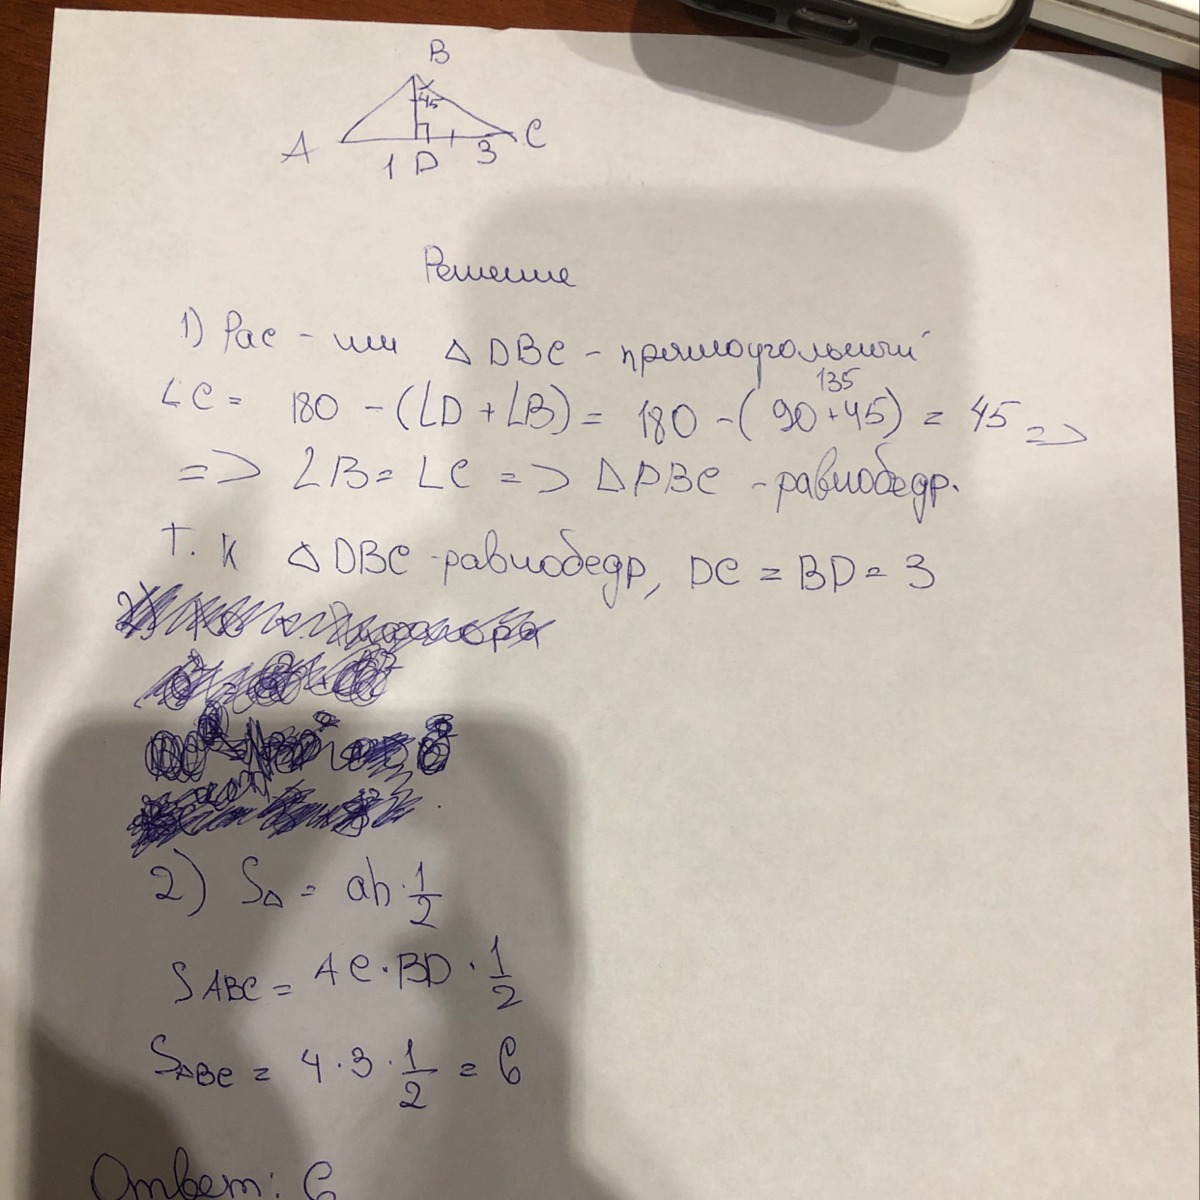 B
45
A
C
1 D 3
Решение
1) Рас-им △ DBC - прямоугольный
135
∠C = 180 - (∠D + ∠B) = 180 - (90+45) = 45 =>
=> ∠B = ∠C => △DBC - равнобедр.
Т. к △ DBC - равнобедр, DC = BD = 3
2) S△ = ah · 1/2
S ABC = AC · BD · 1/2
S ABC = 4 · 3 · 1/2 = 6
Ответ: 6